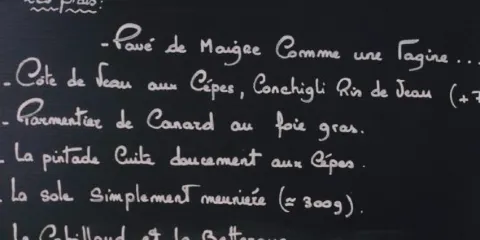 Les plats:
- Pavé de Maigre Comme une Tagine...
- Côte de Veau aux Cépes, Conchigli Ris de Veau (+7
- Parmentier de Canard au foie gras.
- La pintade Cuite doucement aux Cépes.
- La sole Simplement meunière (≈ 300g).
Le Cabillaud et la Betterave